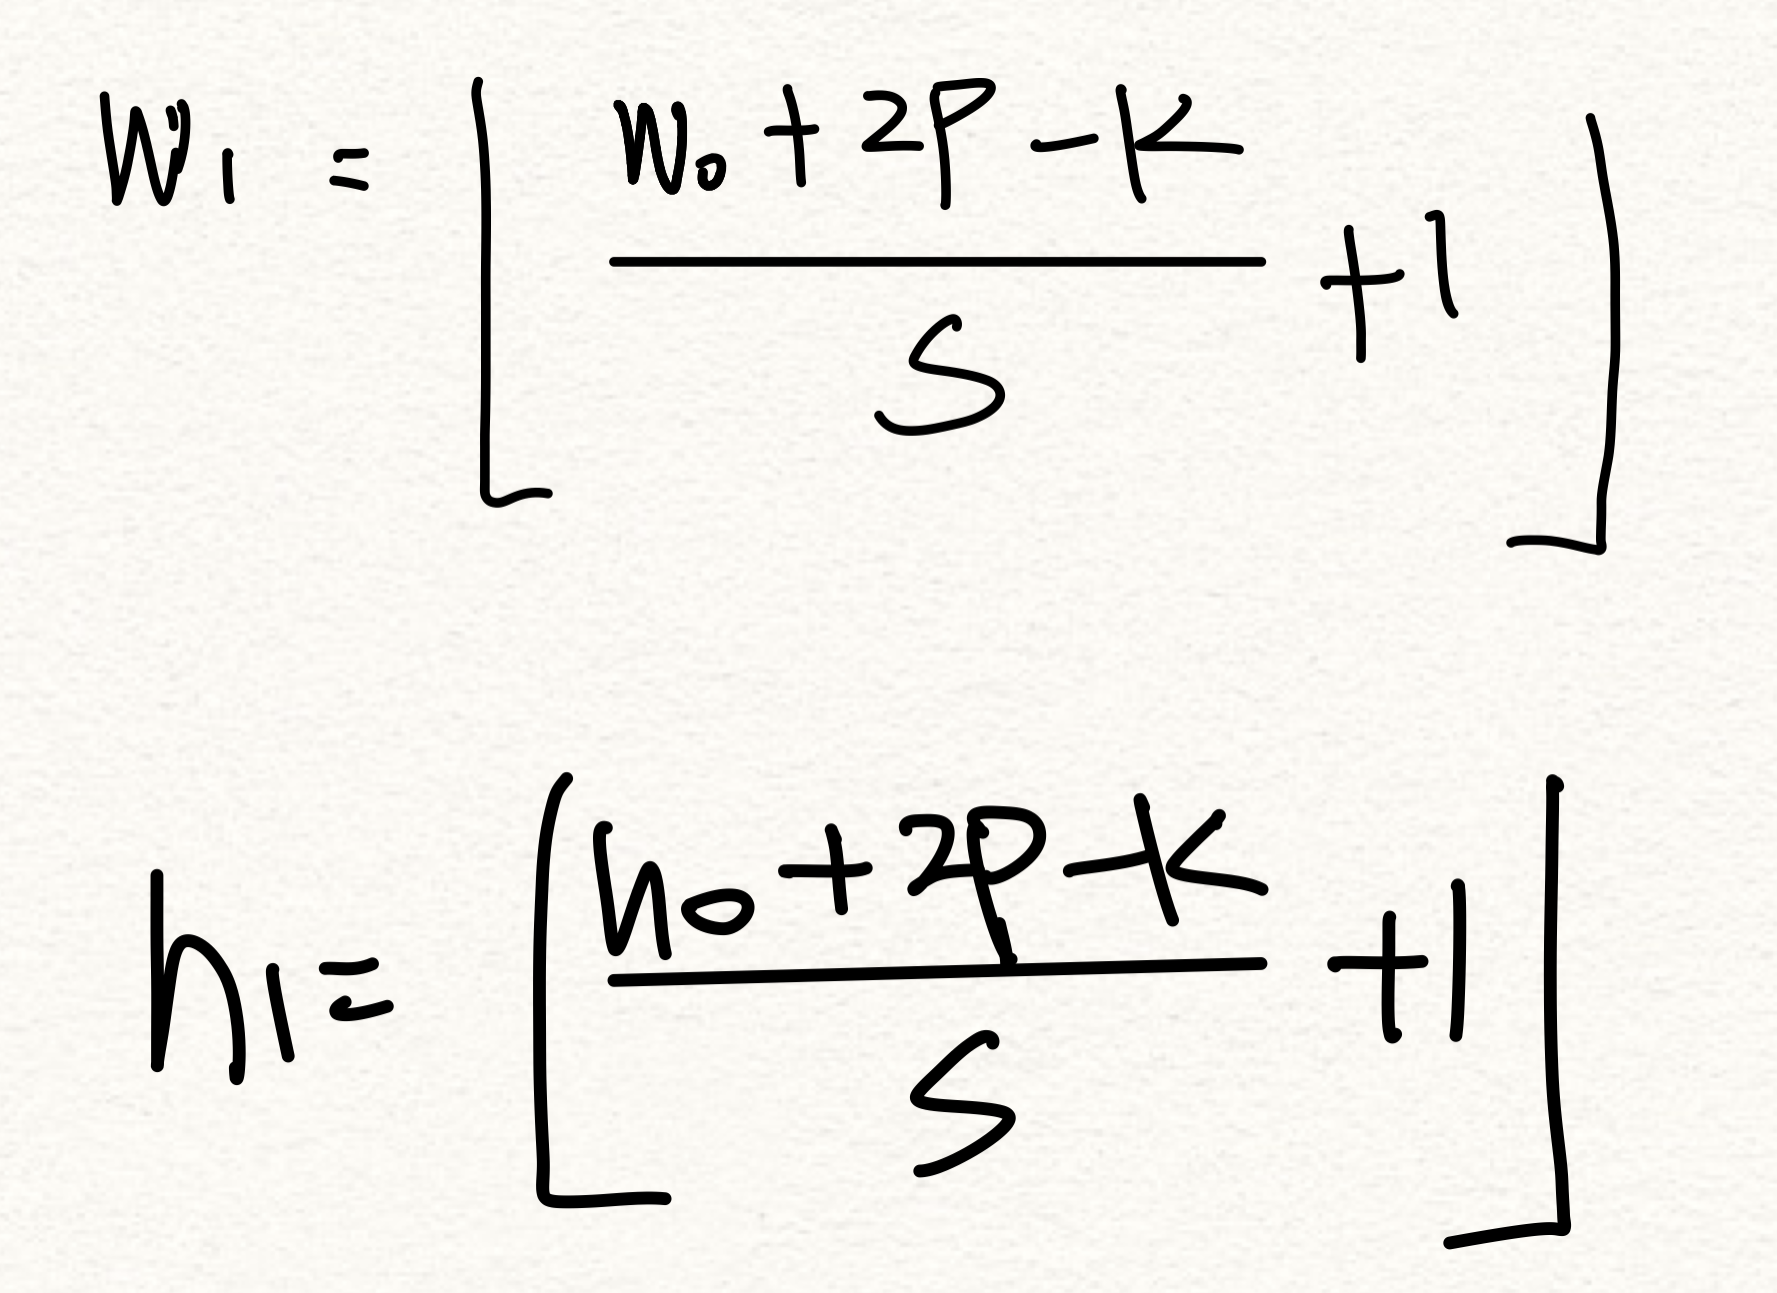 W₁ = ⌊(W₀ + 2P - K) / S + 1⌋
h₁ = ⌊(h₀ + 2P - K) / S + 1⌋